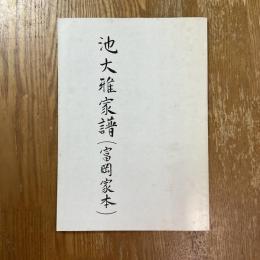 池大雅家譜（富岡家本）